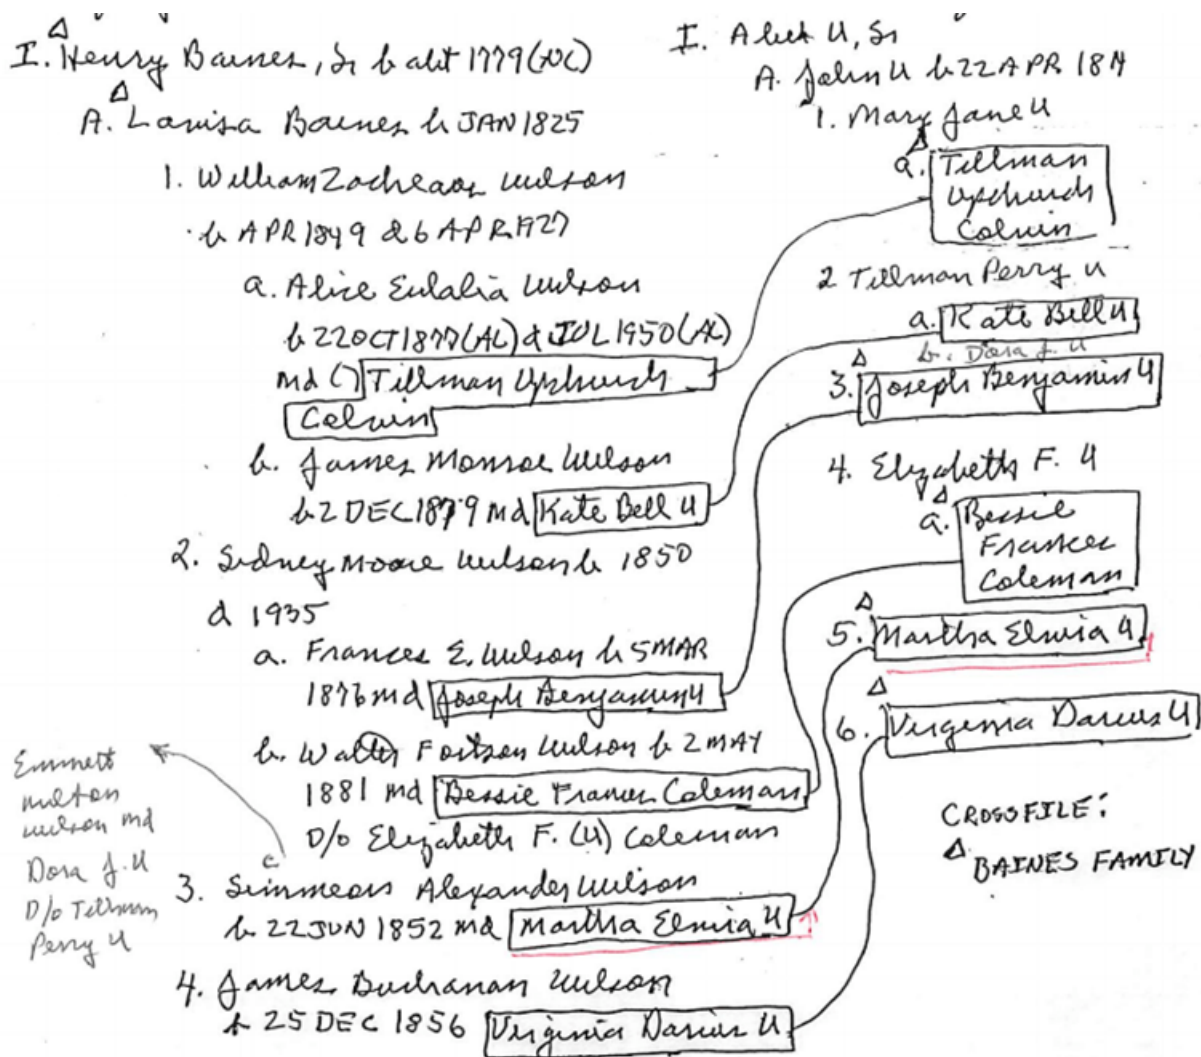 I. Henry Baines, Sr b abt 1779 (NC)
A. Louisa Baines b JAN 1825
1. William Zacheaus Wilson
b APR 1849 d 6 APR 1927
a. Alice Eulalia Wilson
b 22 OCT 1877 (AL) d JUL 1950 (AL)
md () Tillman Upchurch
Colvin
b. James Monroe Wilson
b 2 DEC 1879 md Kate Bell U
2. Sidney Moore Wilson b 1850
d 1935
a. Frances E. Wilson b 5 MAR
1876 md Joseph Benjamin U
b. Walter Fortson Wilson b 2 MAY
1881 md Bessie Frances Coleman
D/o Elizabeth F. (U) Coleman
c
3. Simmeon Alexander Wilson
b 22 JUN 1852 md Martha Elmira U
4. James Buchanan Wilson
b 25 DEC 1856 Virginia Darius U
Emmett
Milton
Wilson md
Dora J. U
D/o Tillman
Perry U
I. Alex U, Sr
A. John U b 22 APR 181
1. Mary Jane U
a. Tillman
Upchurch
Colvin
2 Tillman Perry U
a. Kate Bell U
b. Dora J. U
3. Joseph Benjamin U
4. Elizabeth F. U
a. Bessie
Frances
Coleman
5. Martha Elmira U
6. Virginia Darius U
CROSSFILE:
Δ BAINES FAMILY